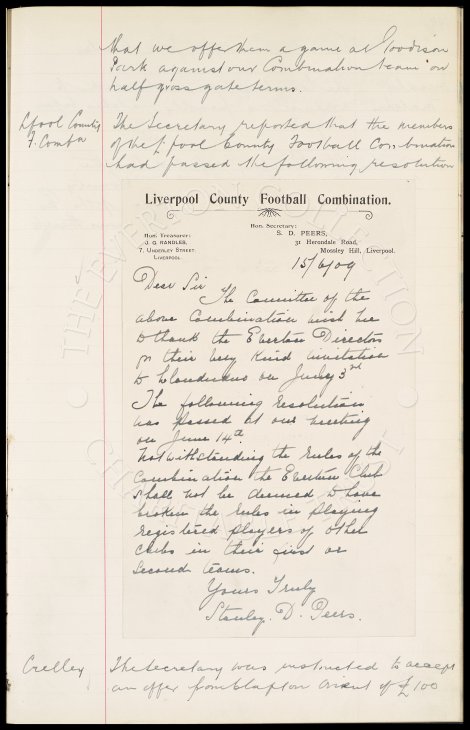 that we offer them a game at Goodison
Park against our Combination team on
half gross gate terms.
Lpool County
F. Combn
The Secretary reported that the members
of the L'pool County Football Combination
had passed the following resolution
Liverpool County Football Combination.
Hon. Treasurer:
J. G. RANDLES,
7, UNDERLEY STREET,
LIVERPOOL.
Hon. Secretary:
S. D. PEERS,
31 Herondale Road,
Mossley Hill, Liverpool.
15/6/09
Dear Sir
The Committee of the
above Combination wish me
to thank the Everton Directors
for their very kind invitation
to Llandudno on July 3rd
The following resolution
was passed at our meeting
on June 14th.
Notwithstanding the rules of the
Combination the Everton Club
shall not be deemed to have
broken the rules in playing
registered players of other
clubs in their first or
second teams.
Yours Truly
Stanley. D. Peers.
Crelley
The Secretary was instructed to accept
an offer from Clapton Orient of £100
THE EVERTON COLLECTION